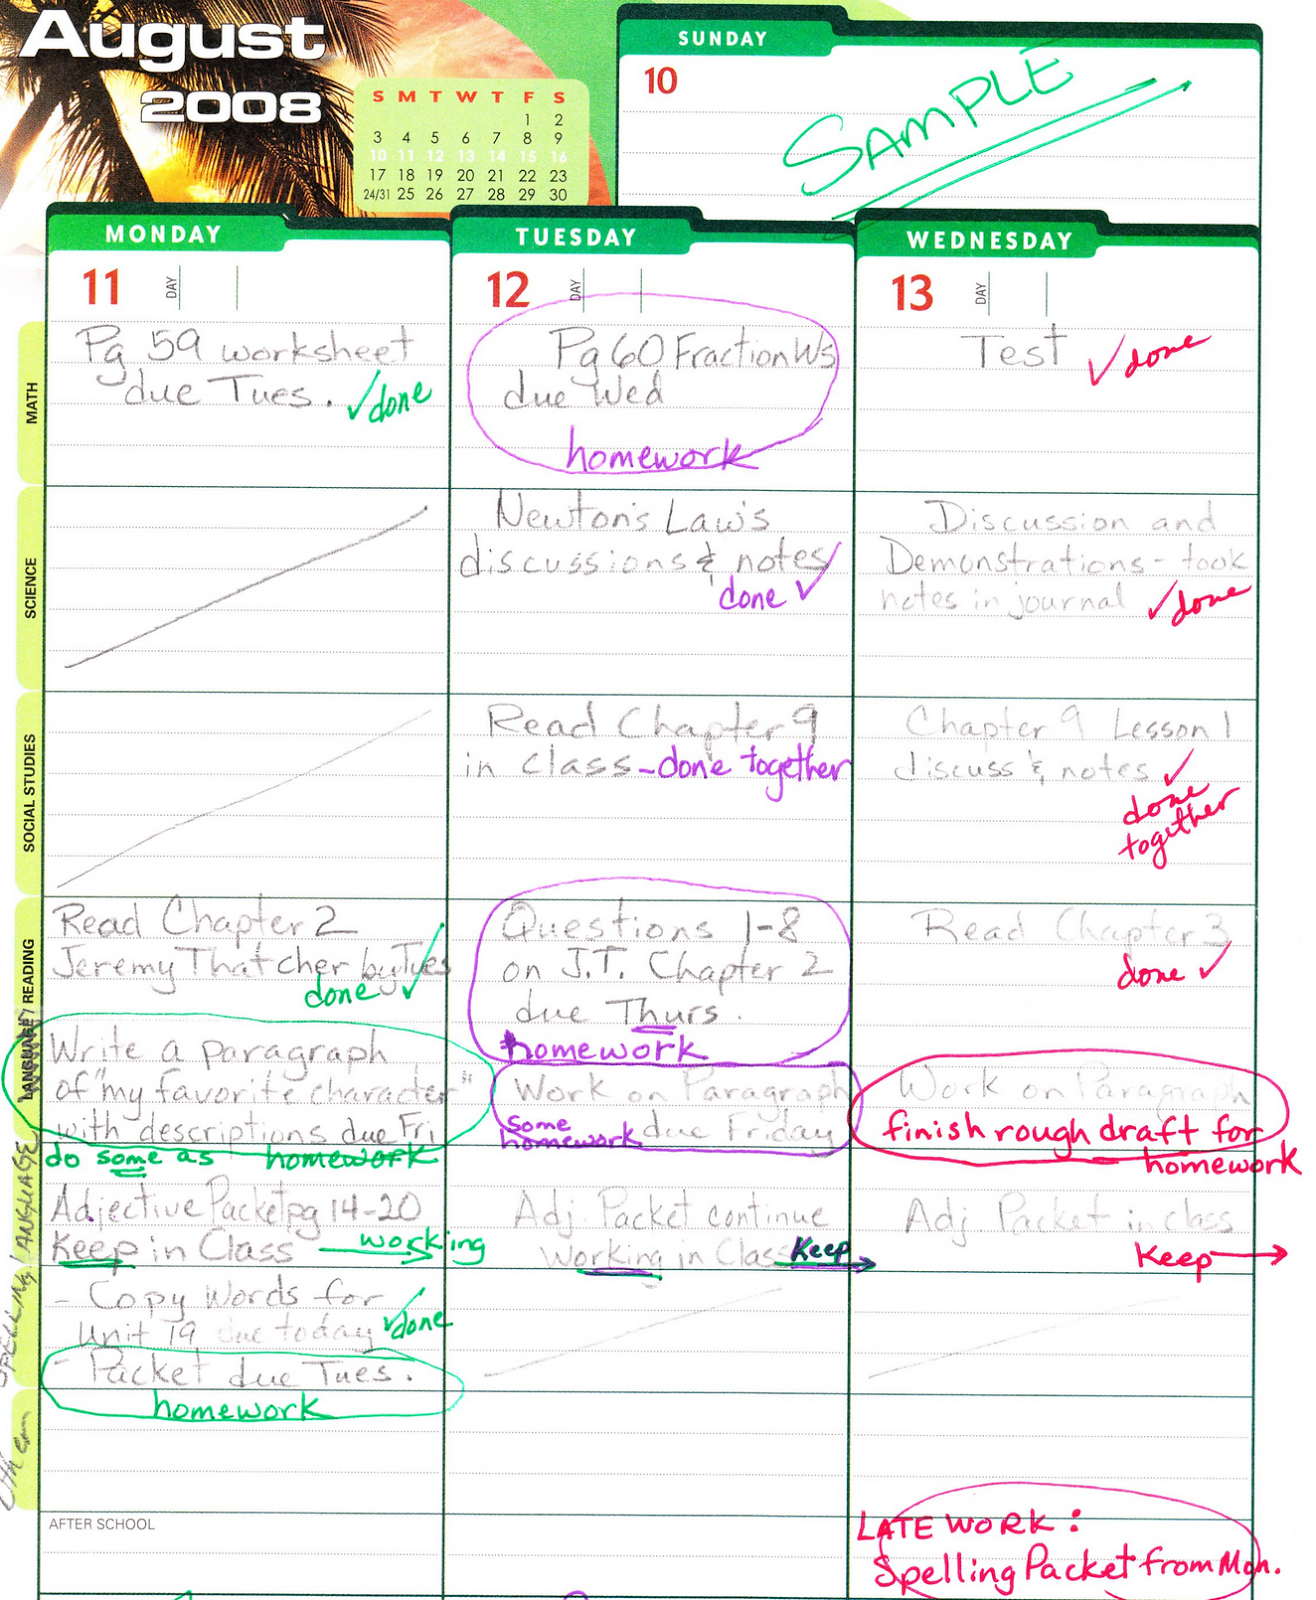 August
2008
S M T W T F S
1 2
3 4 5 6 7 8 9
10 11 12 13 14 15 16
17 18 19 20 21 22 23
24/31 25 26 27 28 29 30
SUNDAY
10
SAMPLE
MONDAY
11
DAY
TUESDAY
12
DAY
WEDNESDAY
13
DAY
MATH
Pg 59 worksheet
due Tues. ✓done
Pg 60 Fraction Ws
due Wed
homework
Test ✓done
SCIENCE
Newton's Law's
discussions & notes
done ✓
Discussion and
Demonstrations - took
notes in journal ✓done
SOCIAL STUDIES
Read Chapter 9
in class - done together
Chapter 9 Lesson 1
discuss & notes ✓
done
together
LANGUAGE/READING
Read Chapter 2
Jeremy Thatcher by Tues
done ✓
Write a paragraph
of "my favorite character"
with descriptions due Fri
do some as homework.
Questions 1-8
on J.T. Chapter 2
due Thurs.
homework
Work on Paragraph
some
homework due Friday
Read Chapter 3
done ✓
Work on Paragraph
finish rough draft for
homework
LANGUAGE
Adjective Packet pg 14-20
Keep in Class → working
Adj. Packet continue
Working in Class Keep →
Adj Packet in class
Keep →
SPELLING
- Copy Words for
Unit 19 due today ✓done
- Packet due Tues.
homework
AFTER SCHOOL
LATE WORK:
Spelling Packet from Mon.